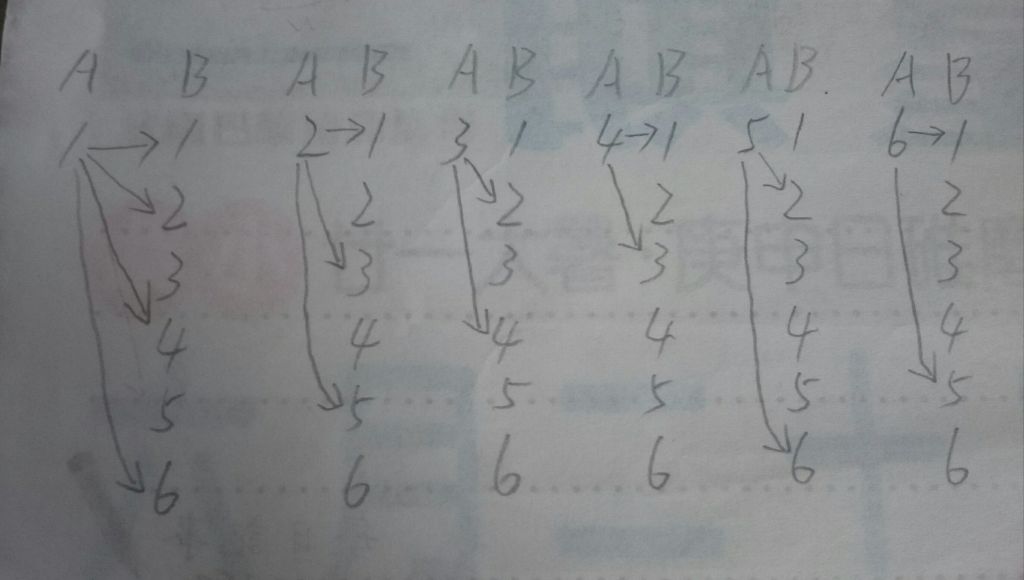 A B A B A B A B A B A B
1 → 1 2 → 1 3 1 4 → 1 5 1 6 → 1
2 2 2 2 2 2
3 3 3 3 3 3
4 4 4 4 4 4
5 5 5 5 5 5
6 6 6 6 6 6